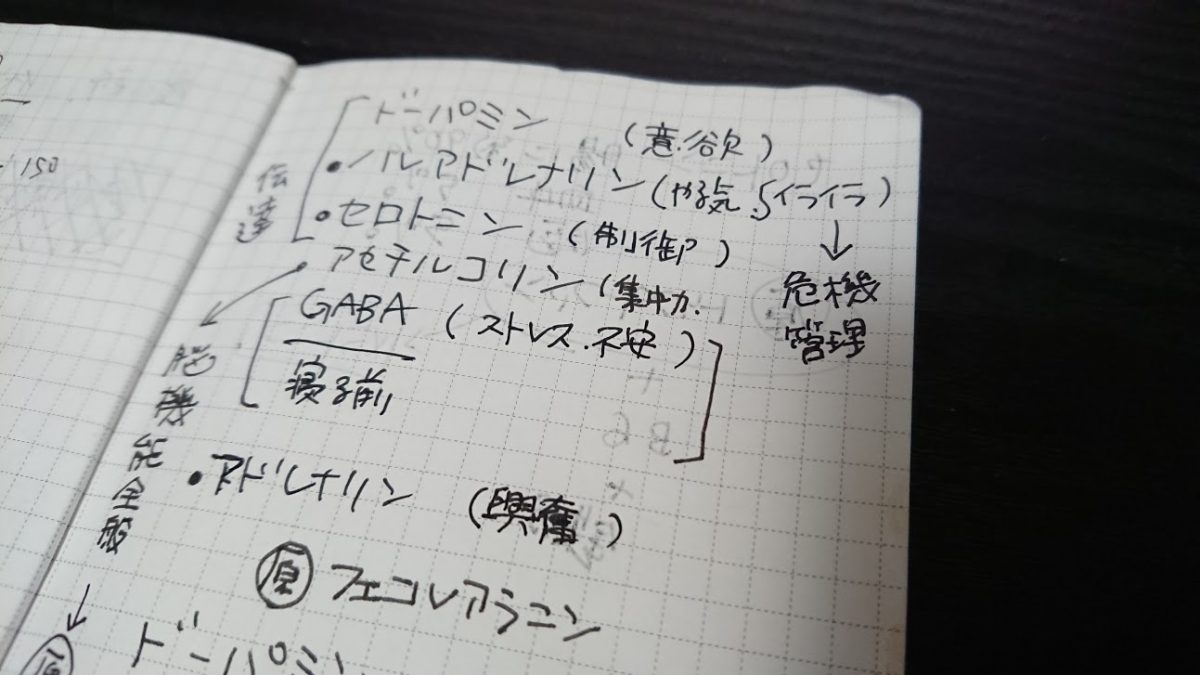 150
ドーパミン (意欲)
・ノルアドレナリン (やる気、イライラ)
↓
危機
管理
・セロトニン (制御)
伝達
・アセチルコリン (集中力.
GABA (ストレス.不安)
寝る前
脳機能全般
↓
・アドレナリン (興奮)
原 フェコレアラニン
ドーパミン
B6